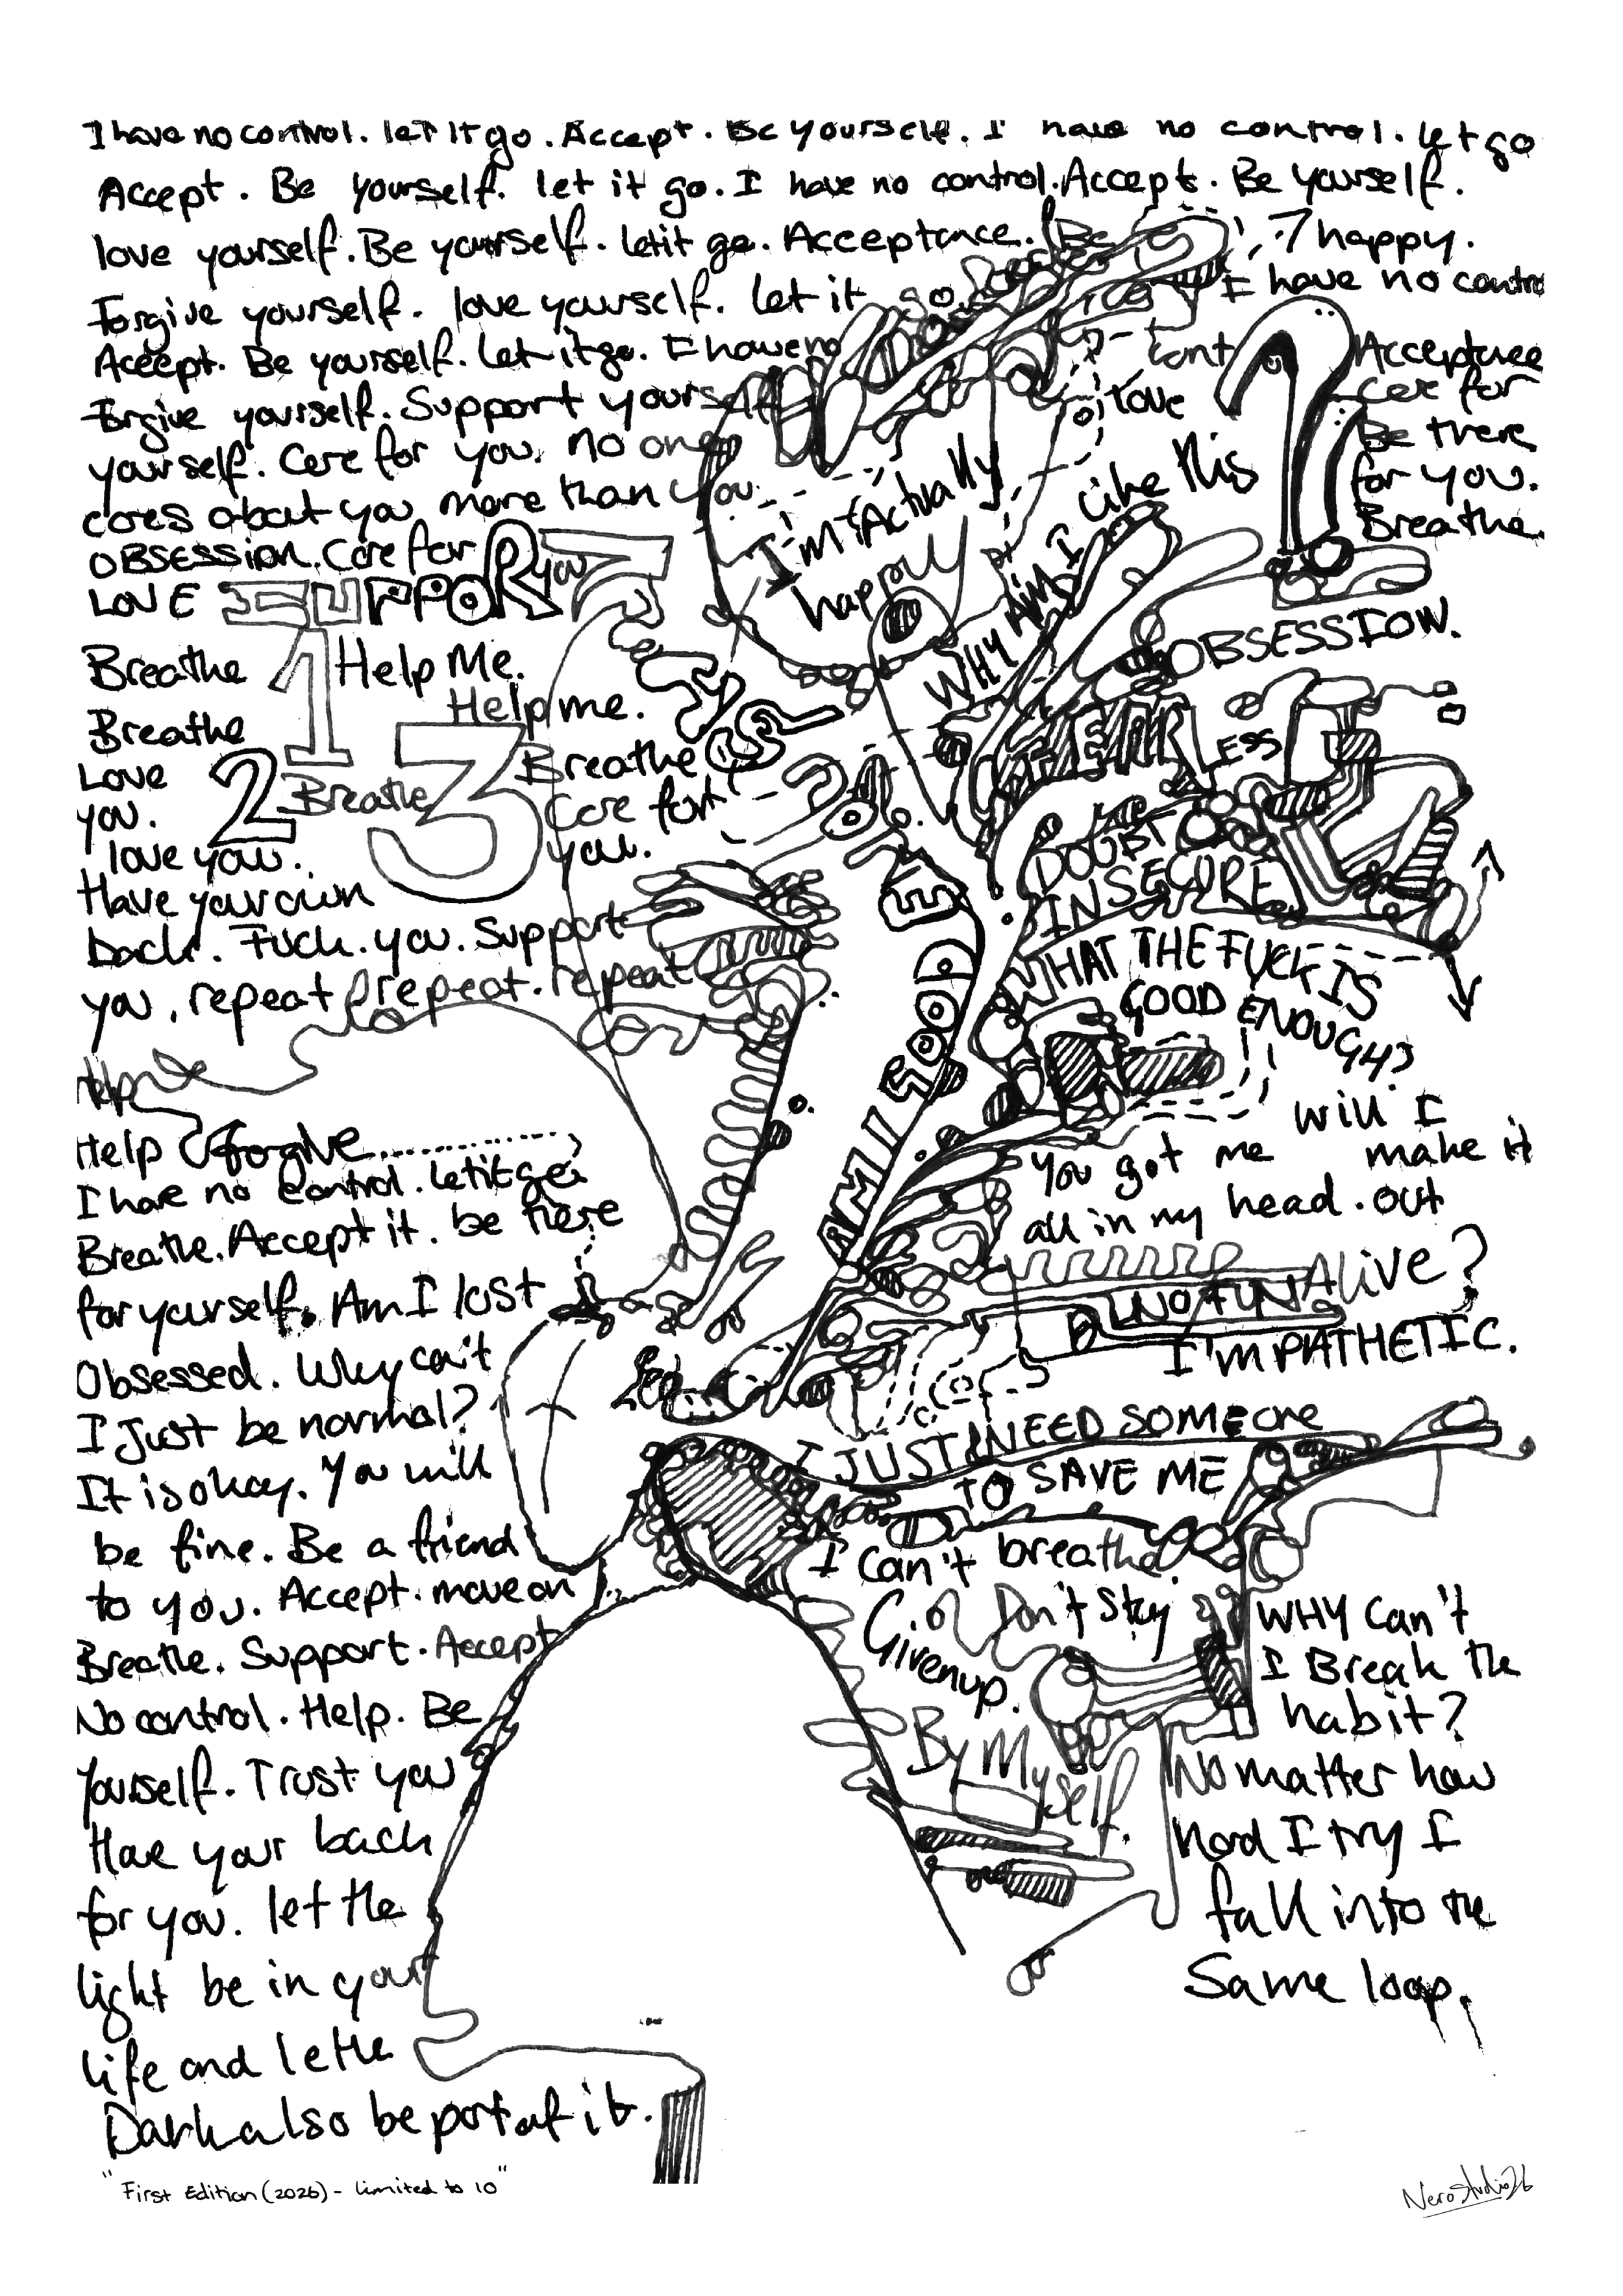 I have no control. let it go. Accept. Be yourself. I have no control. let go
Accept. Be yourself. let it go. I have no control. Accept. Be yourself.
love yourself. Be yourself. let it go. Acceptance. Be happy.
Forgive yourself. love yourself. let it go. I have no contro
Accept. Be yourself. Let it go. I have no
cont
Acceptance
Forgive yourself. Support yourself
love
yourself. Care for you. no one
Be there
cares about you more than you
for you.
Breathe.
OBSESSION. Care for you
LOVE SUPPORT
I'm Actually
happy
WHY Am I like this
OBSESSION.
Breathe 1 Help Me.
Help me.
Breathe
Love
you.
2 Breathe 3 Breathe
Care for
you.
love you.
Have your own
back. Fuck. you. Support
you, repeat repeat. repeat
FEARLESS
DOUBT
INSECURE
WHAT THE FUCK IS
GOOD ENOUGH?
AM I SO
Help
Help forgive
I have no control. let it go
Breathe. Accept it. be there
for yourself. Am I lost
Obsessed. Why can't
I Just be normal?
It is okay. You will
be fine. Be a friend
to you. Accept. move on
Breathe. Support. Accept
No control. Help. Be
Yourself. Trust you
Have your back
for you. let the
light be in your
life and let the
Dark also be part of it.
will I
make it
out
Alive?
You got me
all in my head.
NO FUN
I'M PATHETIC.
I JUST NEED SOMEONE
TO SAVE ME
I can't breathe
Don't Stay
Given up.
By Myself.
WHY Can't
I Break the
habit?
No matter how
hard I try I
fall into the
Same loop.
"First Edition (2026) - Limited to 10"
NeroStudio26